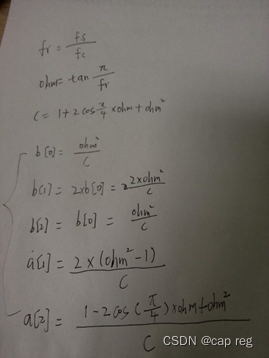 fr = fs/fc
ohm = tan π/fr
C = 1+2cos π/4 × ohm + ohm²
b[0] = ohm²/C
b[1] = 2×b[0] = 2×ohm²/C
b[2] = b[0] = ohm²/C
a[1] = 2×(ohm²-1)/C
a[2] = 1-2cos(π/4)×ohm+ohm²/C
CSDN @cap reg